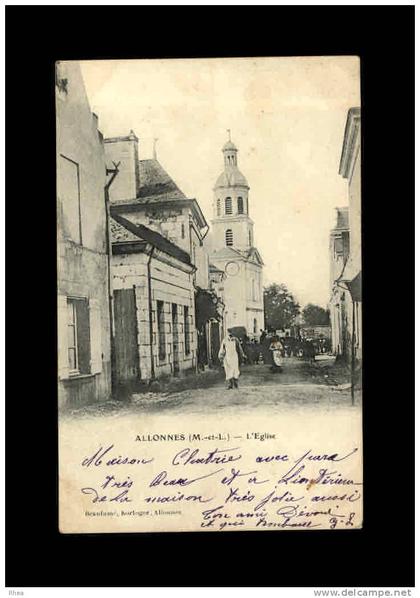 ALLONNES (M.-et-L.) — L'Eglise
Maison Chatrie avec parc
très Beau et a L'intérieur
de la maison très Jolie aussi
Ton ami Dévoué
et qui
Beaufumé, horloger, Allonnes
delcampe.net